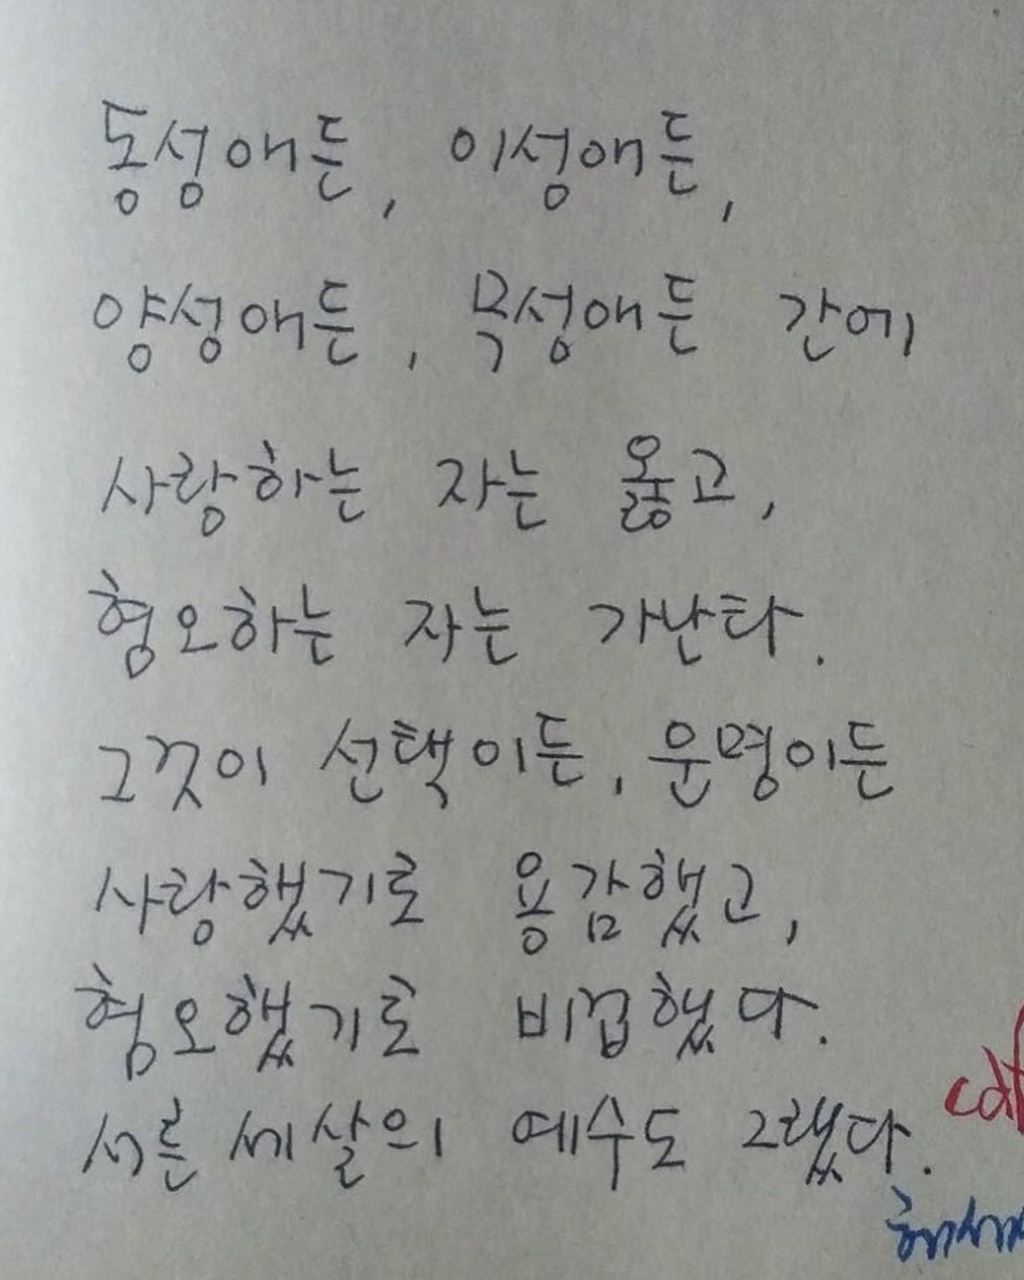 동성애든, 이성애든,
양성애든, 목성애든 간에
사랑하는 자는 옳고,
혐오하는 자는 가난타.
그것이 선택이든, 운명이든
사랑했기로 용감했고,
혐오했기로 비겁했다.
서른 세살의 예수도 그랬다.